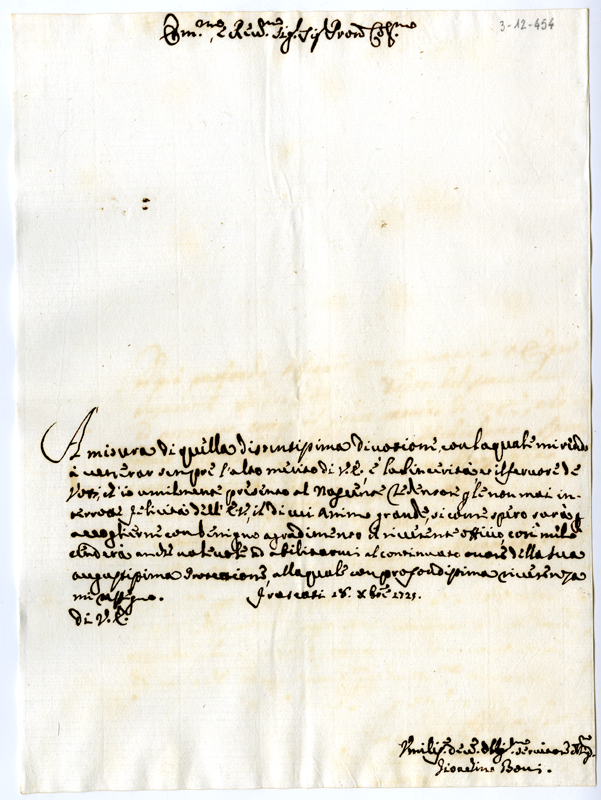 3-12-454
Em.mo e Rev.mo Sig.r Sig.r Pron Col.mo
A misura di quella distintissima divozione, con la quale mi reco
à venerar sempre l'alto merito di V.E., è la sincerità, e il fervore de
Voti, ch'io umilmente presento al Nascente Redentore per le non mai in-
terrotte felicità dell'E.V., il di cui Animo grande, si come spero sarà p
accoglierne con benigno agradimento il riverente officio, così mi
anche valevole ad abilitarmi al continuato onore della sua
augustissima Protezione, alla quale con profondissima riverenza
mi rassegno. Frascati 18. Xbre 1725.
Di V.E.
Umilis.o Dev.o Oblig.mo Servitore
Boni.